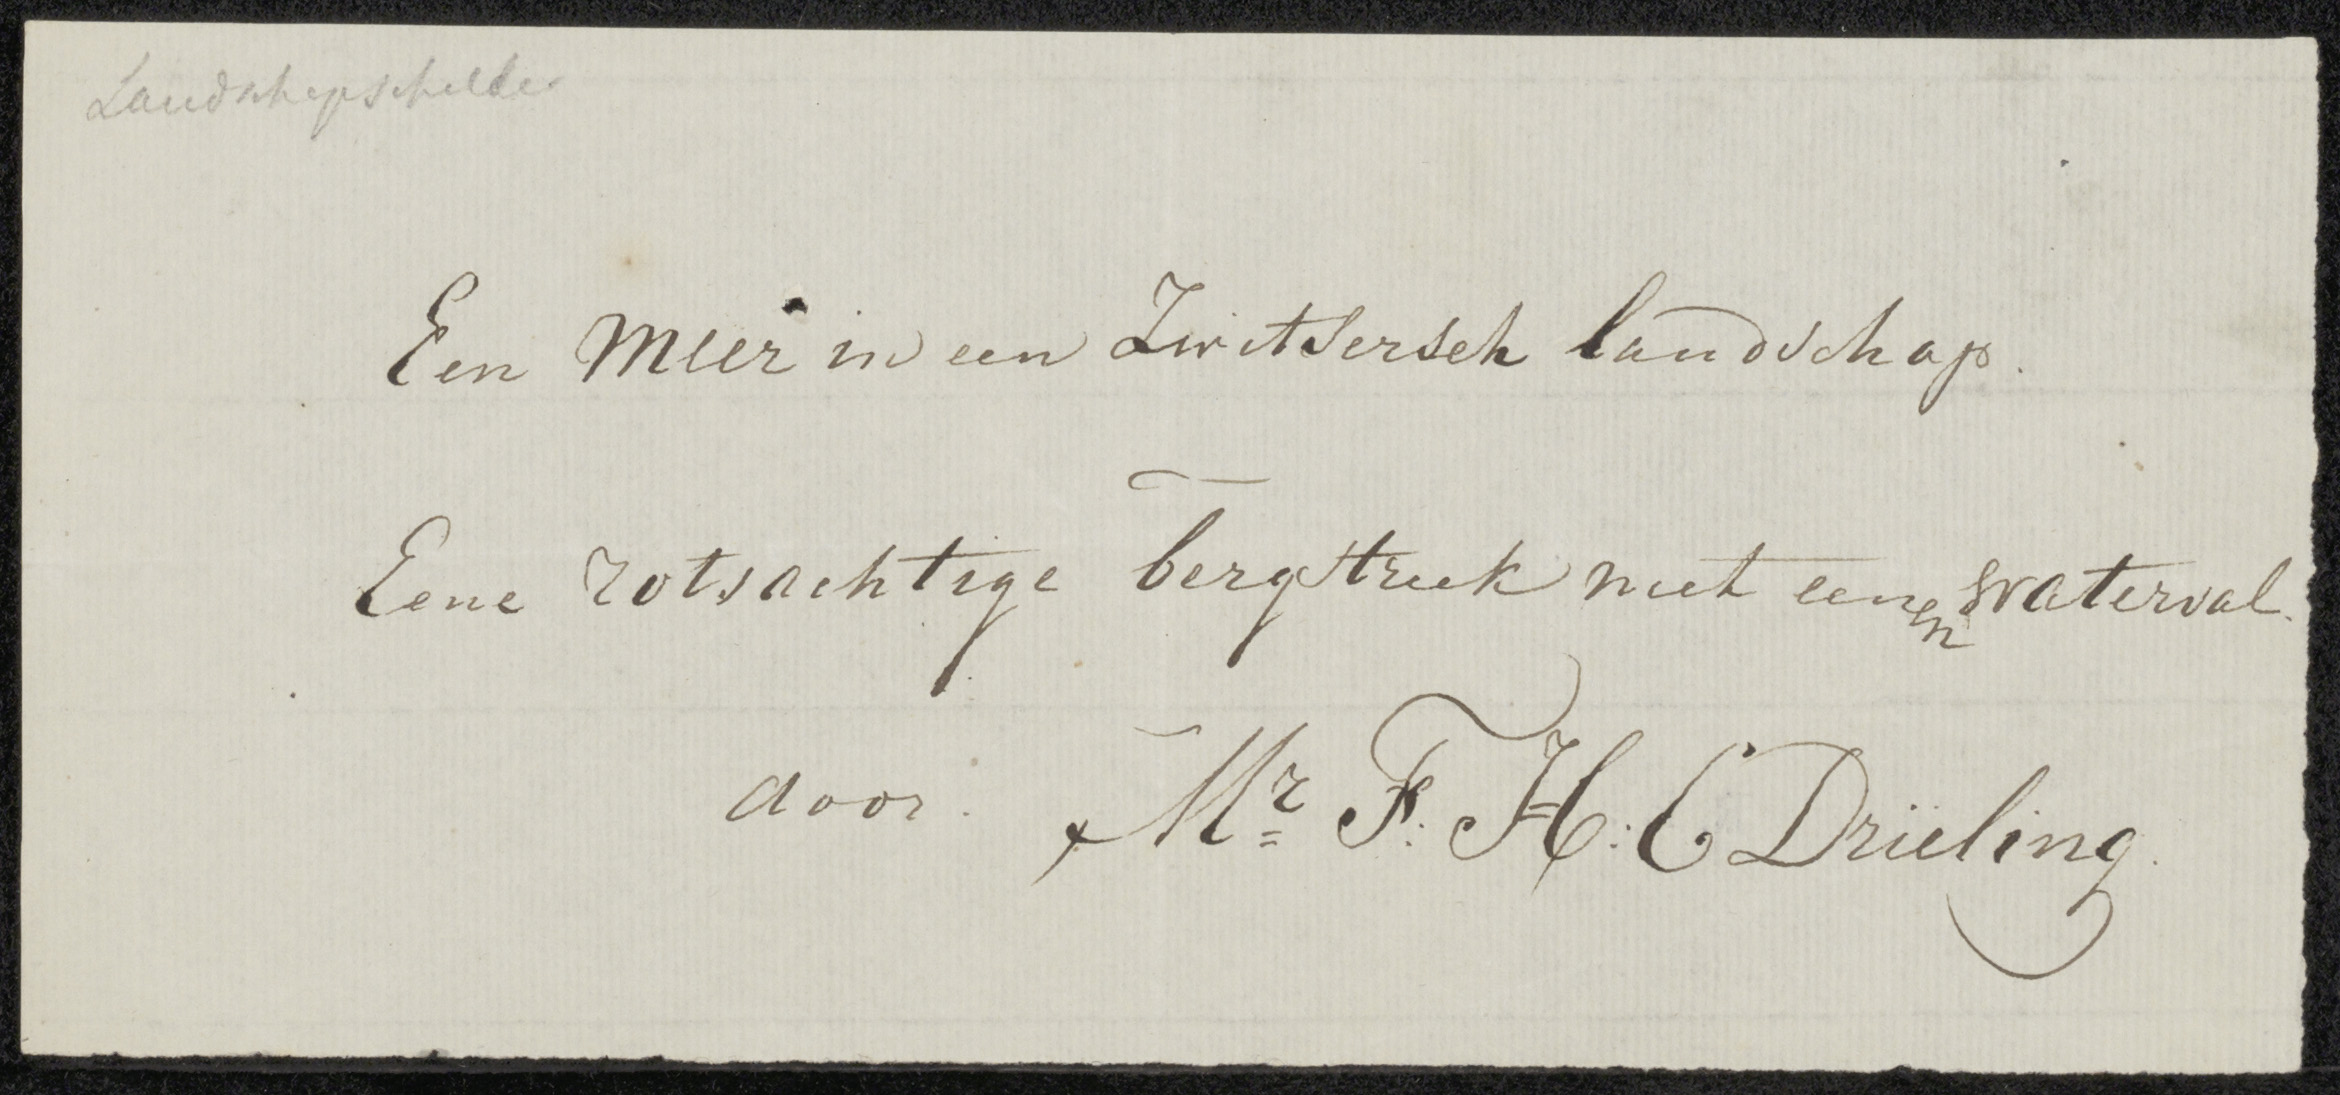 Landschapschilder
Een meer in een Zwitsersch landschap.
Eene rotsachtige bergstreek met eenen waterval.
door. Mr F. H. C Drieling.